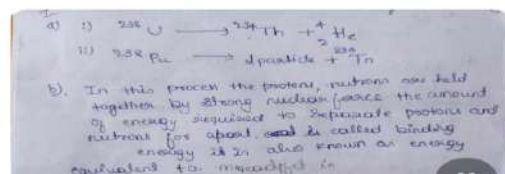 a) i) ²³⁸ U → ²³⁴Th + ⁴₂He
ii) 238 Pu → α particle + ²³⁴Tn
b). In this process the protons, nutrons are held
together by strong nuclear force the amount
of energy required to separate protons and
nutrons for apart is called binding
energy it is also known as energy
equivalent to